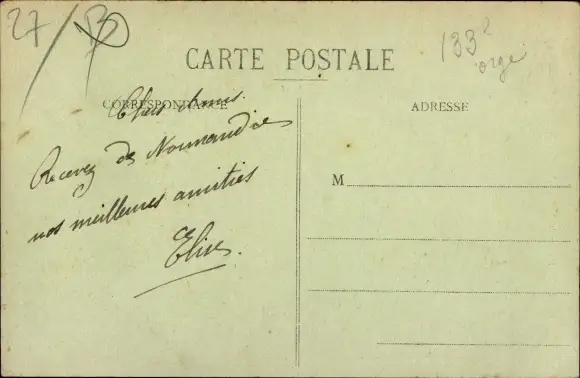 27/B
133e
orge
CARTE POSTALE
CORRESPONDANCE
ADRESSE
Chers Amis.
Recevez de Normandie
nos meilleures amitiés
Elise.
M